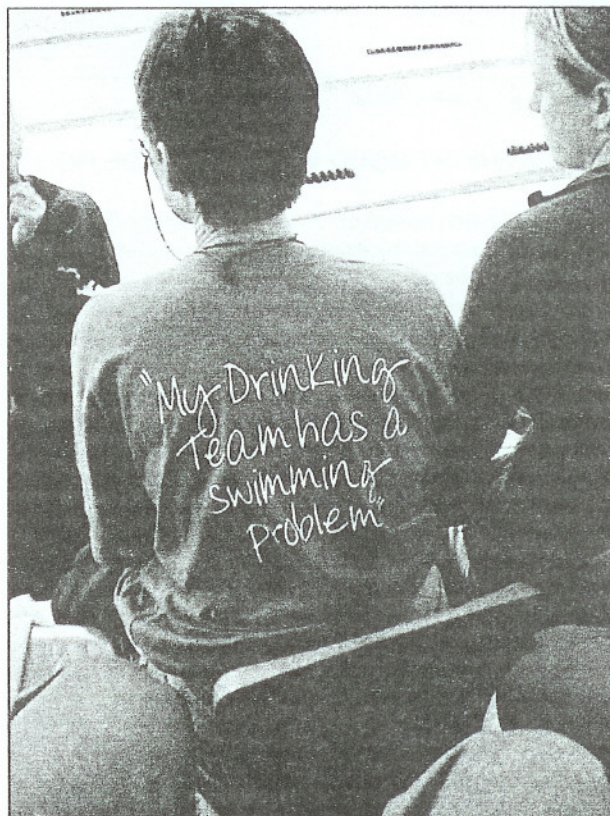 "My Drinking
Team has a
swimming
problem"